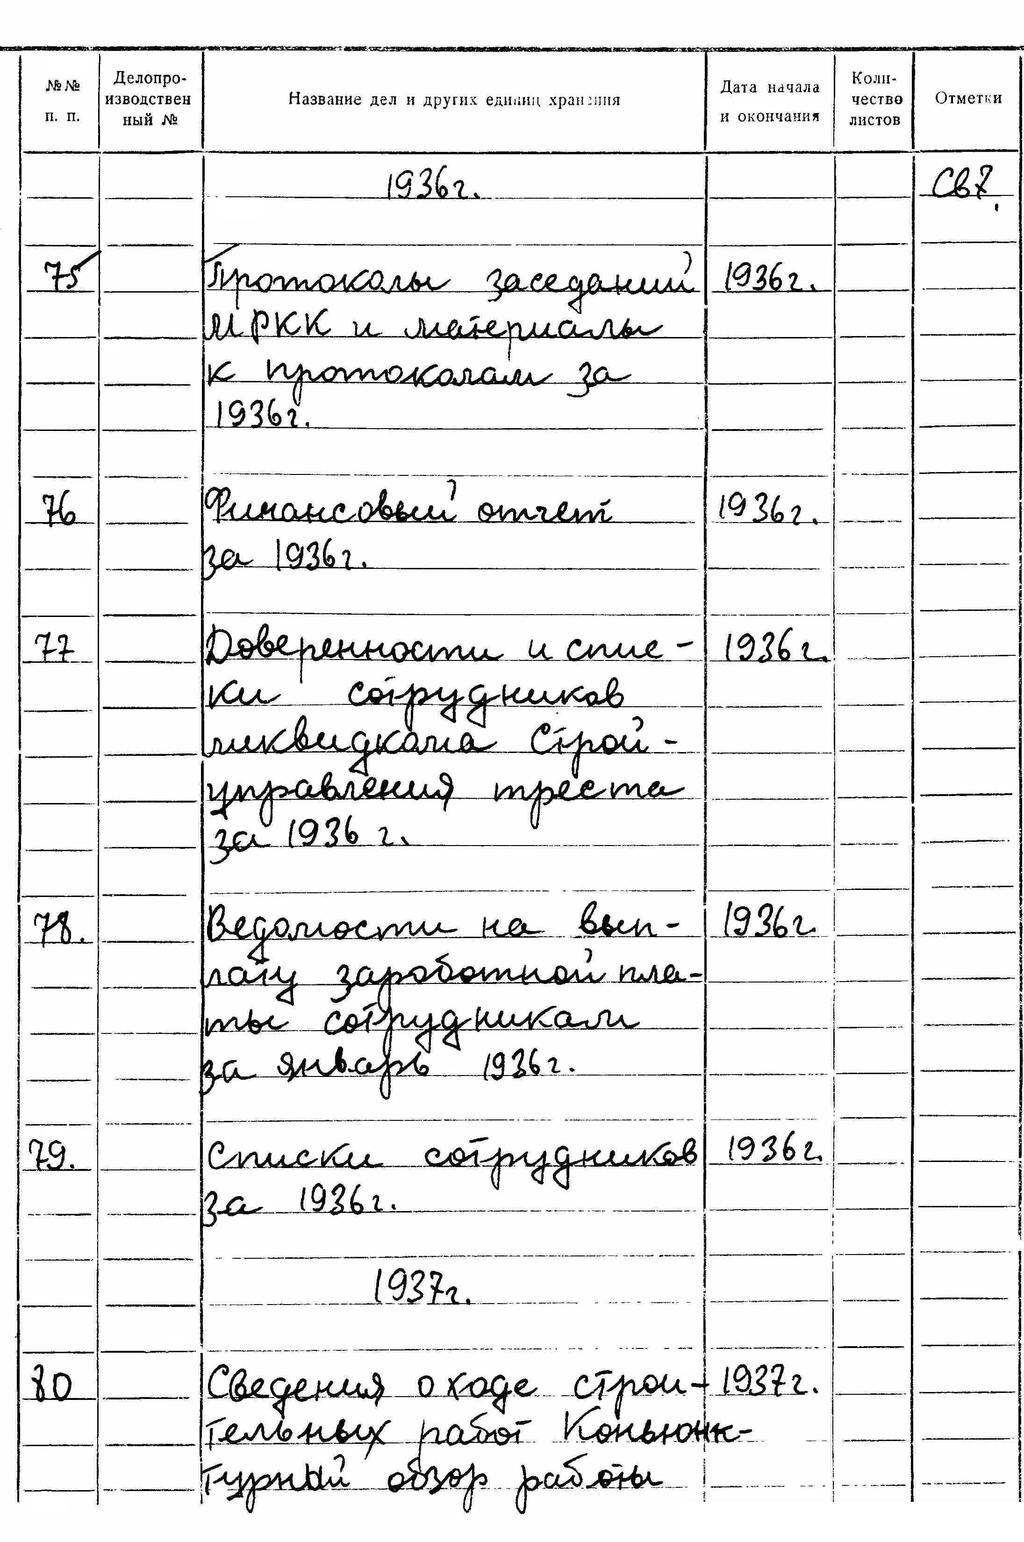 №№ п. п. Делопро- изводствен ный № Название дел и других единиц хранения Дата начала и окончания Коли- чество листов Отметки
1936г. Св7.
75 Протоколы заседаний 1936г.
МРКК и материалы
к протоколам за
1936г.
76 Финансовый отчет 1936г.
за 1936г.
77 Доверенности и спис- 1936г.
ки сотрудников
ликвидкома Строй-
управления треста
за 1936 г.
78. Ведомости на вып- 1936г.
лату заработной пла-
ты сотрудникам
за январь 1936г.
79. Списки сотрудников 1936г.
за 1936г.
1937г.
80 Сведения о ходе строи- 1937г.
тельных работ Коньюнк-
турный обзор работы